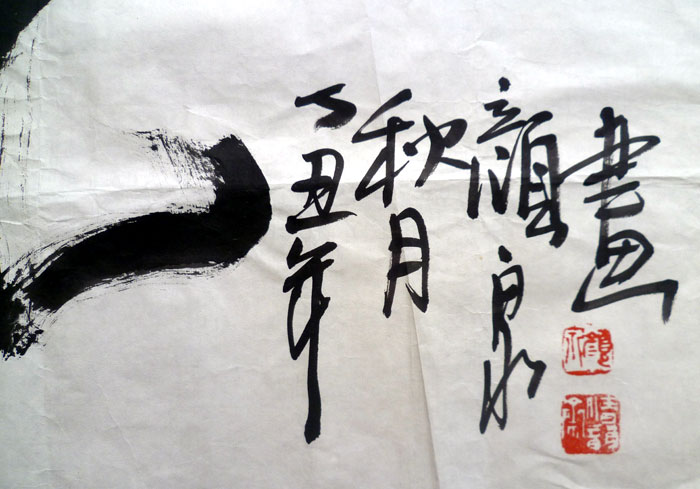 丁丑年
秋月
顏泉
畫